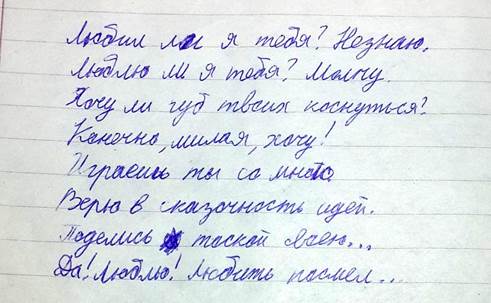 Любил ли я тебя? Незнаю.
Люблю ли я тебя? Молчу.
Хочу ли губ твоих коснуться?
Конечно, милая, хочу!
Играешь ты со мною
Верю в сказочность идей.
Поделись тоской своею...
Да! Люблю! Любить посмел...